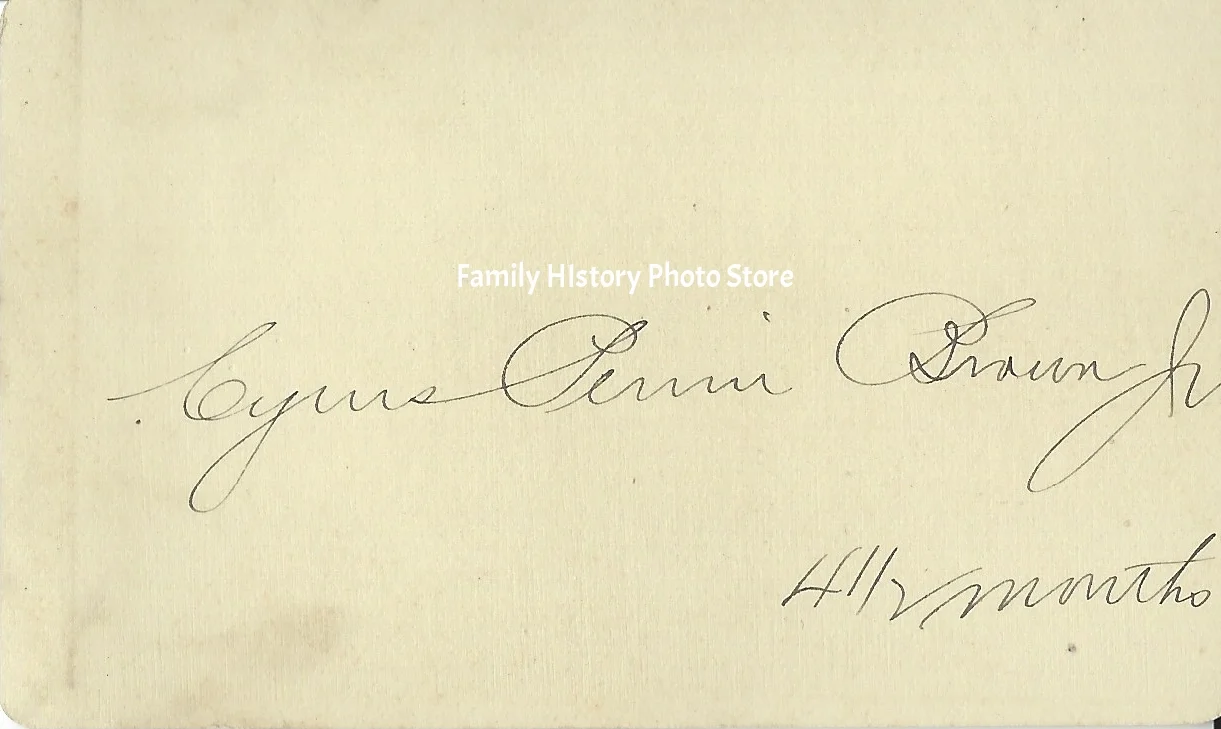 Family HIstory Photo Store
Cyrus Perrin Brown Jr
4 1/2 months